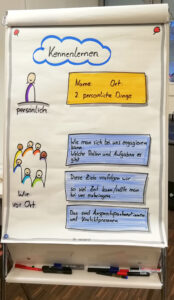 Kennenlernen
Name Ort
2 persönliche Dinge
persönlich
Wie man sich bei uns engagieren kann
Welche Rollen und Aufgaben es gibt
Diese Ziele verfolgen wir
so viel Zeit kann/sollte man bei uns mitbringen
Das sind Ansprechpartner:innen
und Kontaktpersonen
Wir
vor Ort